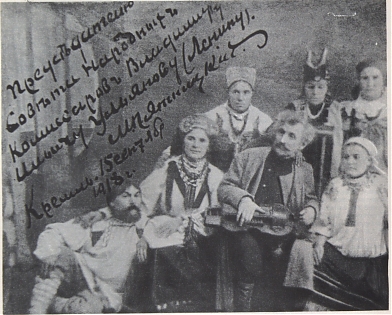 Председателю
Совѣта Народныхъ
комиссаровъ Владиміру
Ильичу Ульянову (Ленину).
М. Пятницкій.
Кремль. 15 сент.
1918 г.